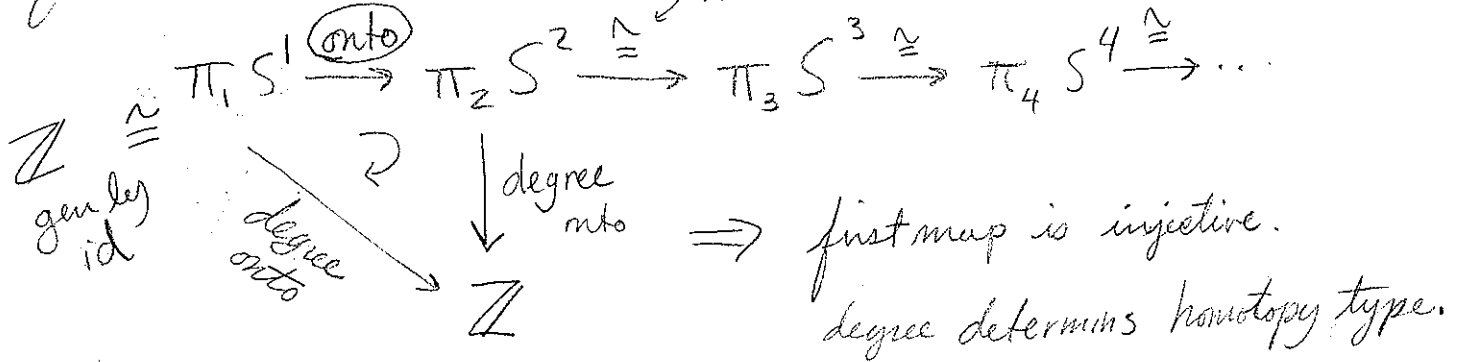 π₁S¹ ⟶ (onto) π₂S² ⟶ ≅ π₃S³ ⟶ ≅ π₄S⁴ ⟶ ≅ ...
ℤ ≅
gen by
id
degree
onto
degree
onto
ℤ
⟹ first map is injective.
degree determins homotopy type.